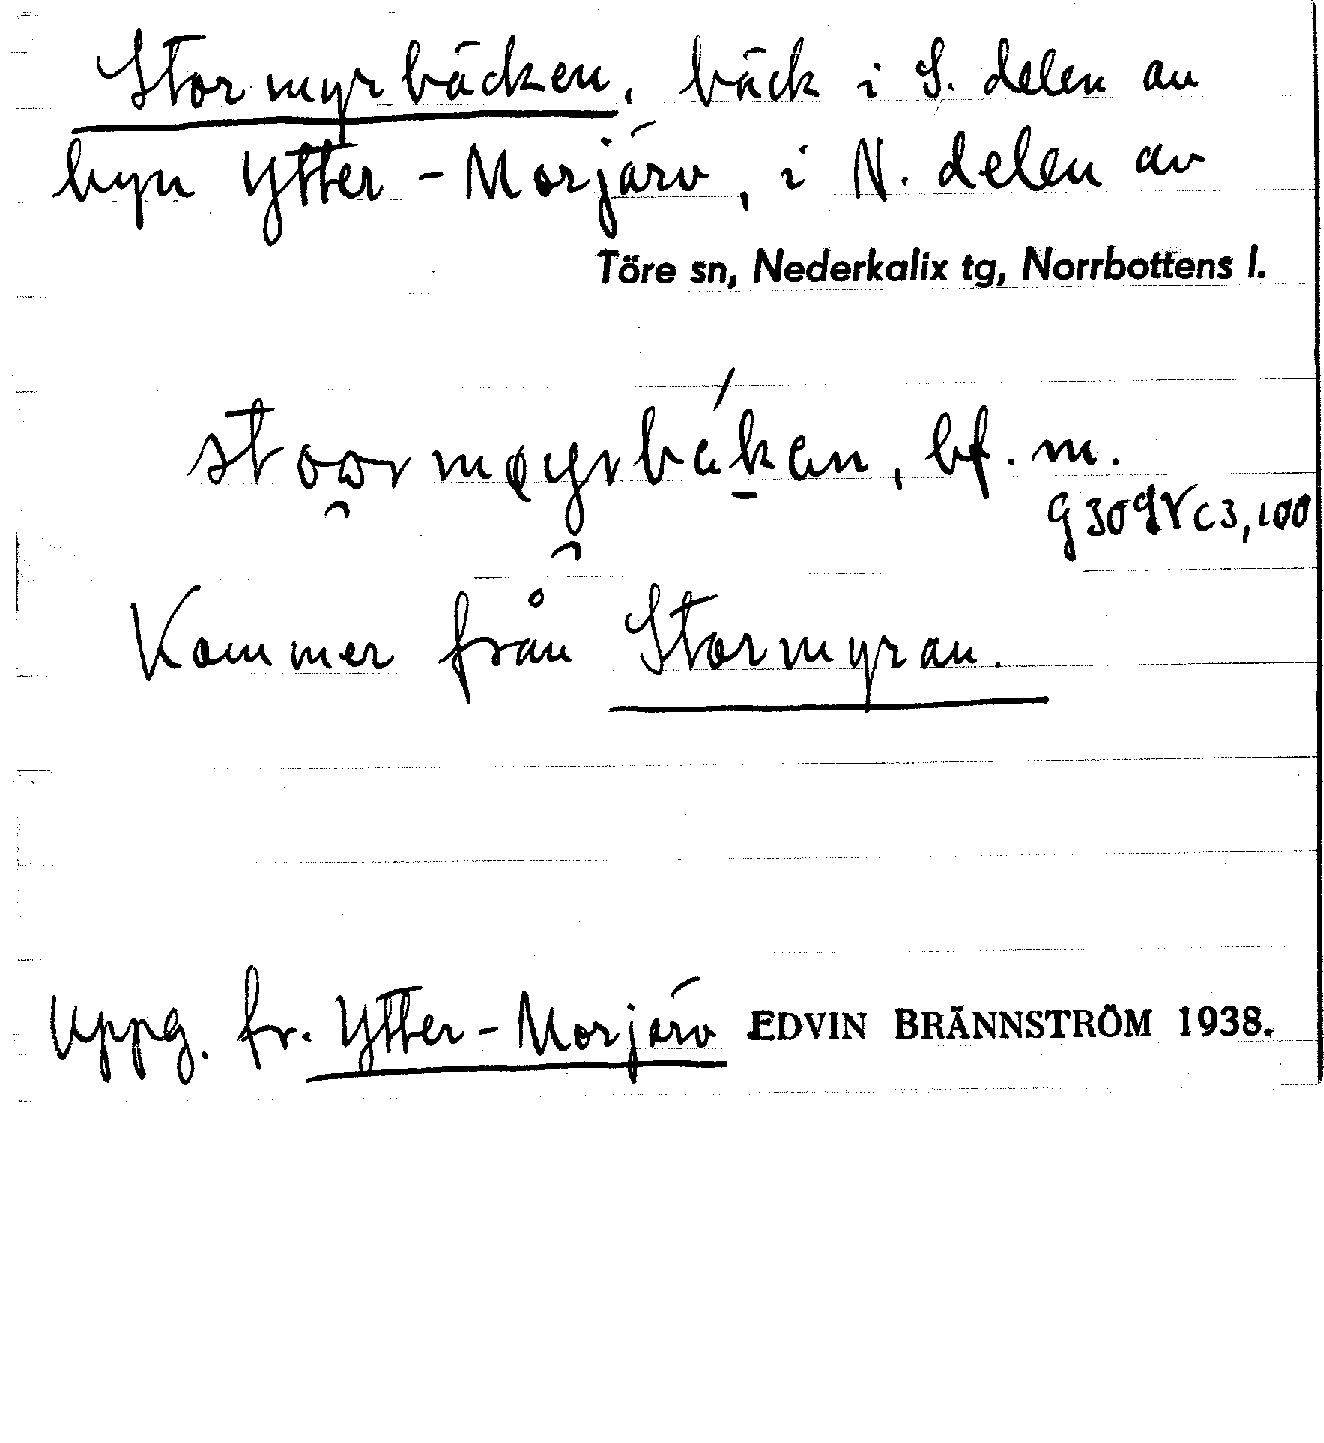 Stormyrbäcken, bäck i S. delen av
byn Ytter-Morjärv, i N. delen av
Töre sn, Nederkalix tg, Norrbottens l.
bf. m.
Kommer från Stormyran.
Uppg. fr. Ytter-Morjärv EDVIN BRÄNNSTRÖM 1938.